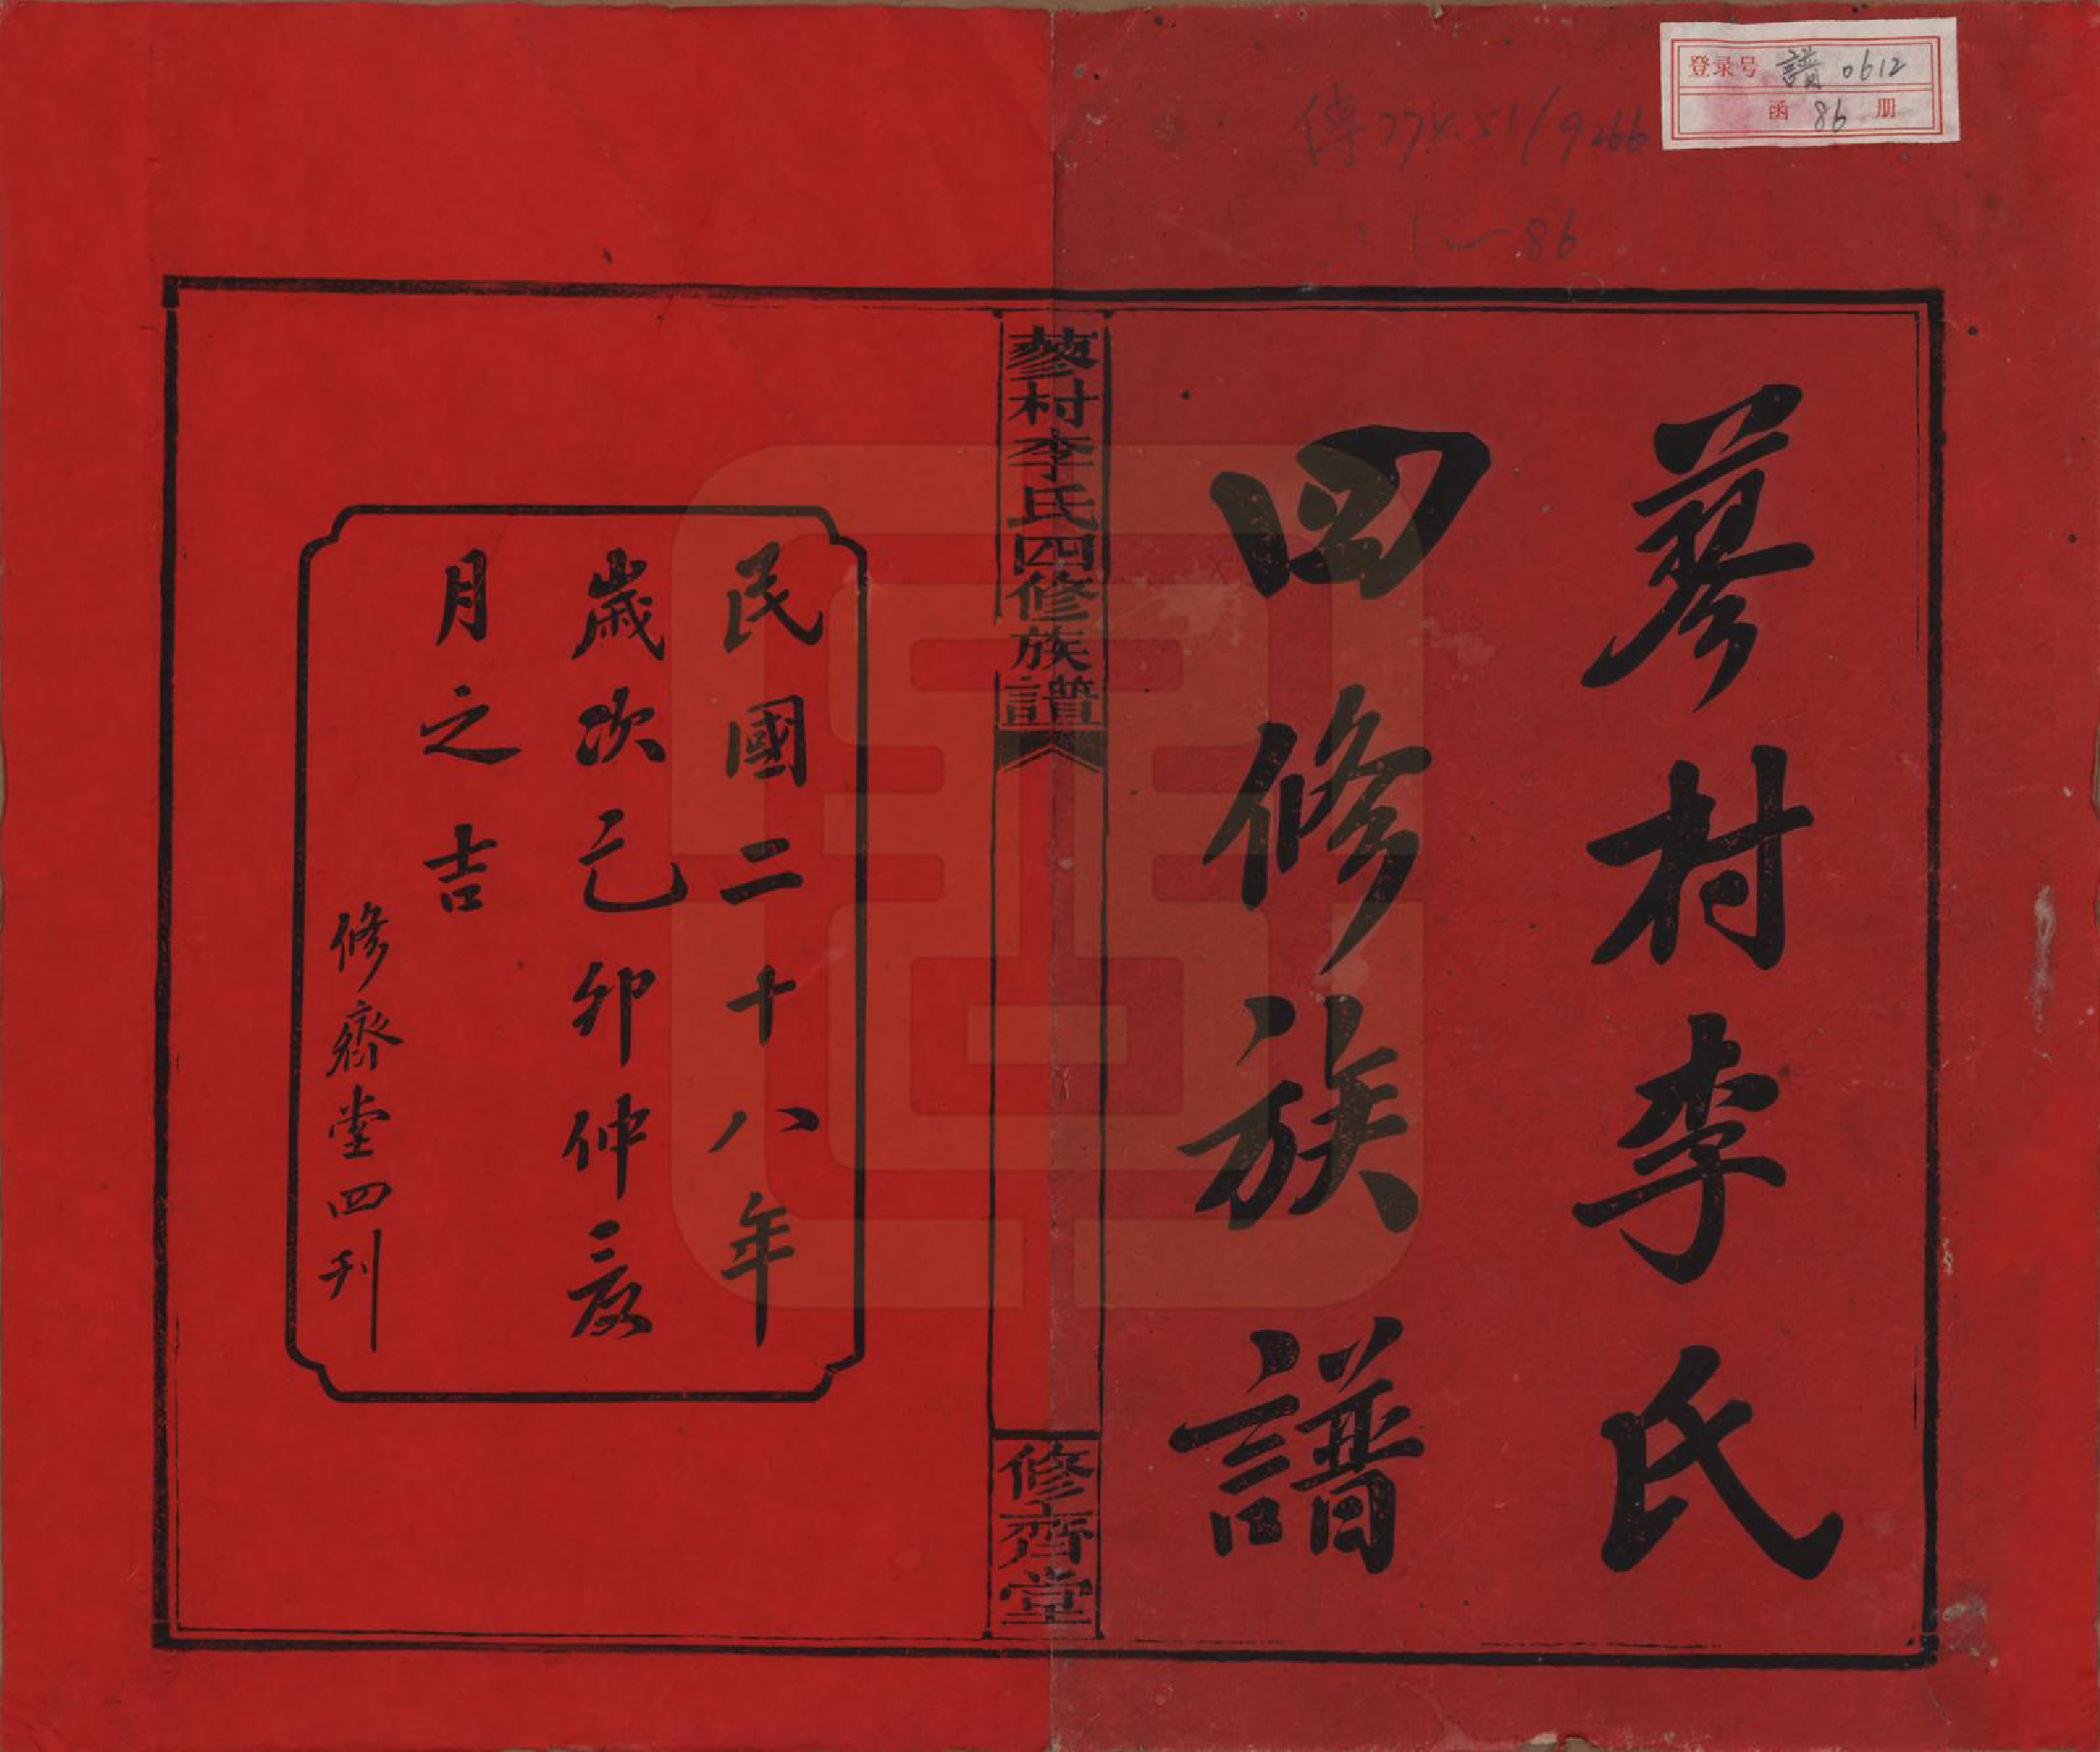 登录号 譜 0612
函 86 册
傳 774.51/9266
1~86
蓼村李氏
四修族譜
蓼村李氏四修族譜
修齊堂
民國二十八年
歲次己卯仲夏
月之吉
修齊堂四刊